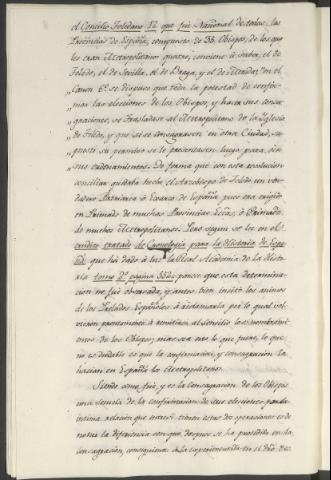 el Concilio Toledano 12 que fué Nacional de todas las
Provincias de España, compuesto de 35 Obispos, de los que
les eran Metropolitanos quatro, conviene á saber, el de
Toledo, el de Sevilla, el de Braga, y el de Merida, en el
Canon 6º se dispuso que toda la potestad de confir-
mar las elecciones de los Obispos, y hacer sus consa-
graciones, se trasladase al Metropolitano de la Iglesia
de Toledo, y que si se consagrasen en otra Ciudad, su-
puesto su permiso se le presentasen luego para
sus ordenamientos. De forma que con esta resolucion
conciliar quedaba hecho el Arzobispo de Toledo, un ver-
dadero Patriarca ó Exarca de España, pues era erigido
en Primado de muchas Provincias Eccas, ó Primado
de muchos Metropolitanos. Pero segun se lee en el
erudito tratado de Cronologia para la Historia de Espa-
ña que ha dado á luz la Real Academia de la Histo-
ria tomo 2º pagina parece que esta determina-
cion no fué observada, y antes bien incitó los animos
de los Prelados Españoles á reclamarla por lo qual vol-
vieron posteriormente á remitirse al Concilio los nombramien-
tos de los Obispos; mas sea mas lo que fuere, lo que
no es dudable es que la confirmacion, y consagracion se
hacian en España los Metropolitanos.
Siendo como fué, y es la Consagracion de los Obispos
una secuela de la confirmacion de sus elecciones por la
intima relacion que entre sí tienen estas dos operaciones es de
notar la diferencia con que despues se ha procedido en la
consagracion, consiguiente á la experimentada en el dro. de